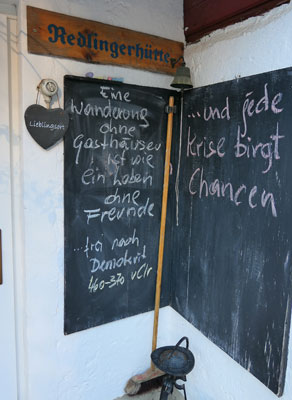 Redlingerhütte
Lieblingsort
Eine
Wanderung
ohne
Gasthäuser
ist wie
Ein Leben
ohne
Freunde
...frei nach
Demokrit
460-370 v Chr
...und jede
Krise birgt
Chancen